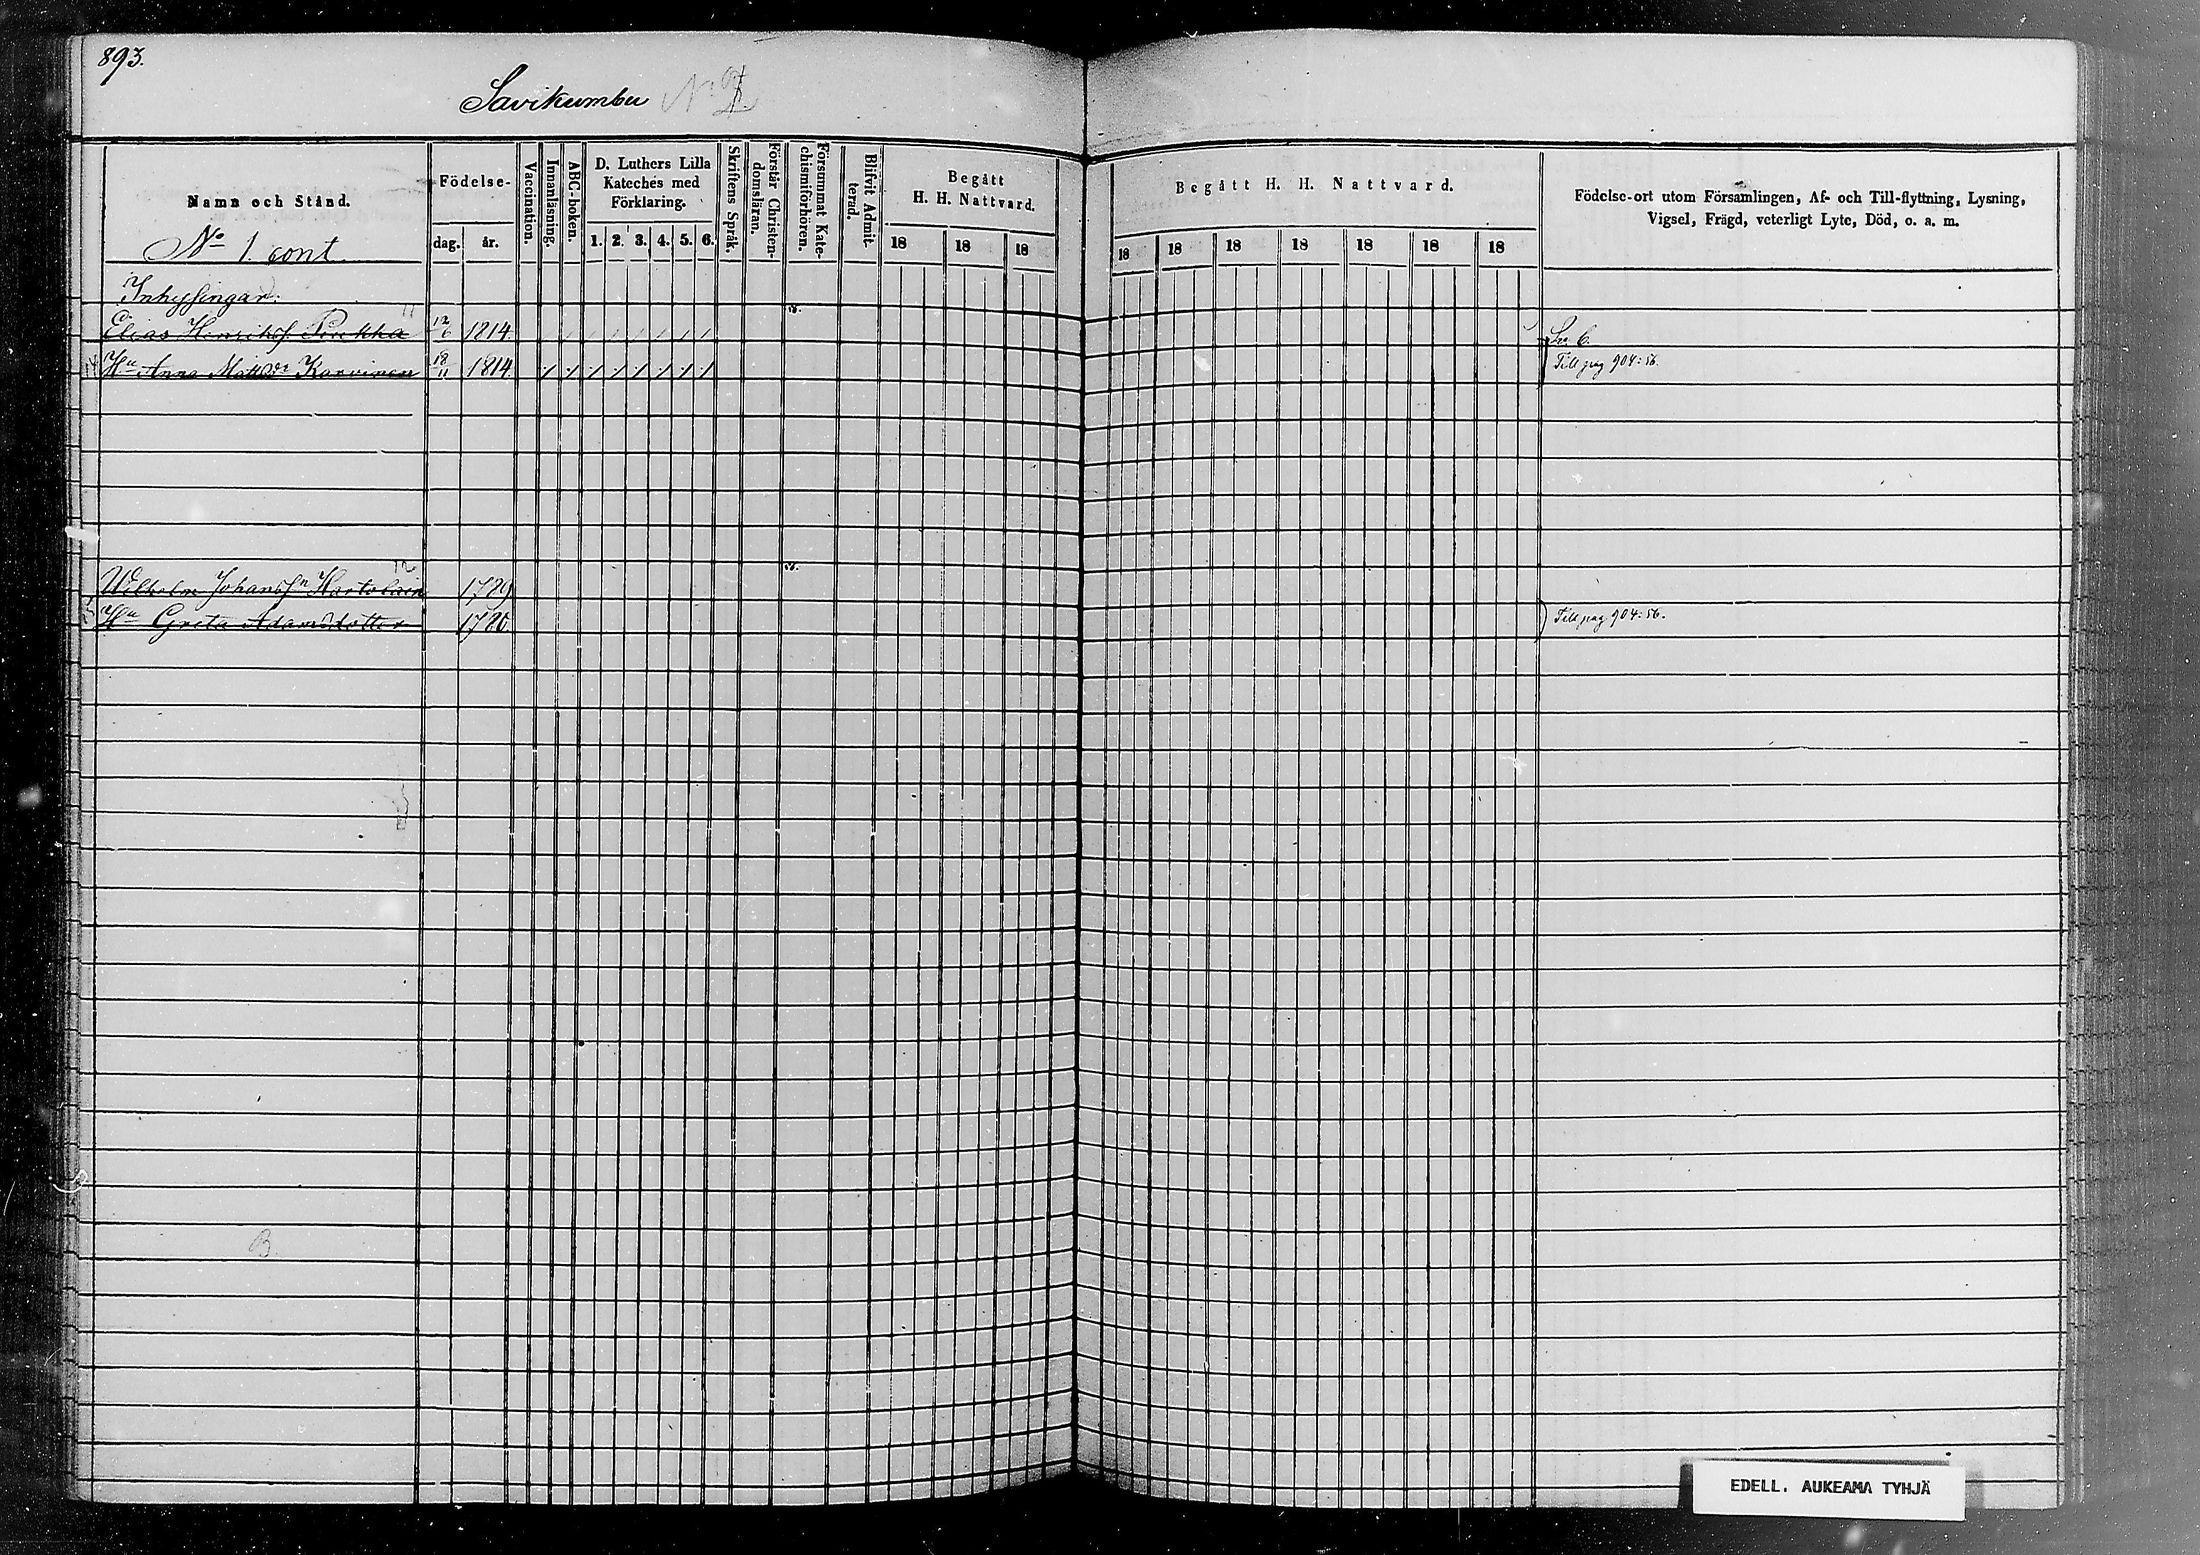 893.
Savikumbu No
Namn och Stånd.
No 1. cont.
Födelse-
dag. år.
Vaccination.
Innanläsning.
ABC-boken.
D. Luthers Lilla
Kateches med
Förklaring.
1. 2. 3. 4. 5. 6.
Skriftens Språk.
Förstår Christen-
domsläran.
Försummat Kate-
chismiförhören.
Blifvit Admit-
terad.
Begått
H. H. Nattvard.
18 18 18
Begått H. H. Nattvard.
18 18 18 18 18 18 18
Födelse-ort utom Församlingen, Af- och Till-flyttning, Lysning,
Vigsel, Frägd, veterligt Lyte, Död, o. a. m.
Inhysingar:
11
Elias Henrikss. Pirkka 12/6 1814.
Hu Anna Mattsdr Karvinen 18/11 1814. Till pag 904:56.
12
Wilhelm Johanss n Hartolain 1789
Hu Greta Adamsdotter 1780. Till pag 904:56.
B.
EDELL. AUKEAMA TYHJÄ